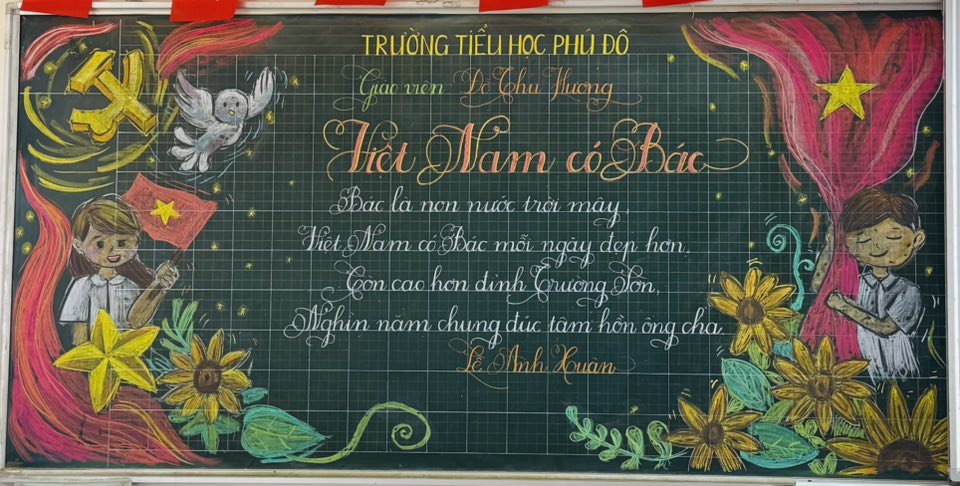 TRƯỜNG TIỂU HỌC PHÚ ĐÔ
Giáo viên Đỗ Thu Hương
Việt Nam có Bác
Bác là non nước trời mây,
Việt Nam có Bác mỗi ngày đẹp hơn.
Còn cao hơn đỉnh Trường Sơn,
Nghìn năm chung đúc tâm hồn ông cha.
Lê Anh Xuân